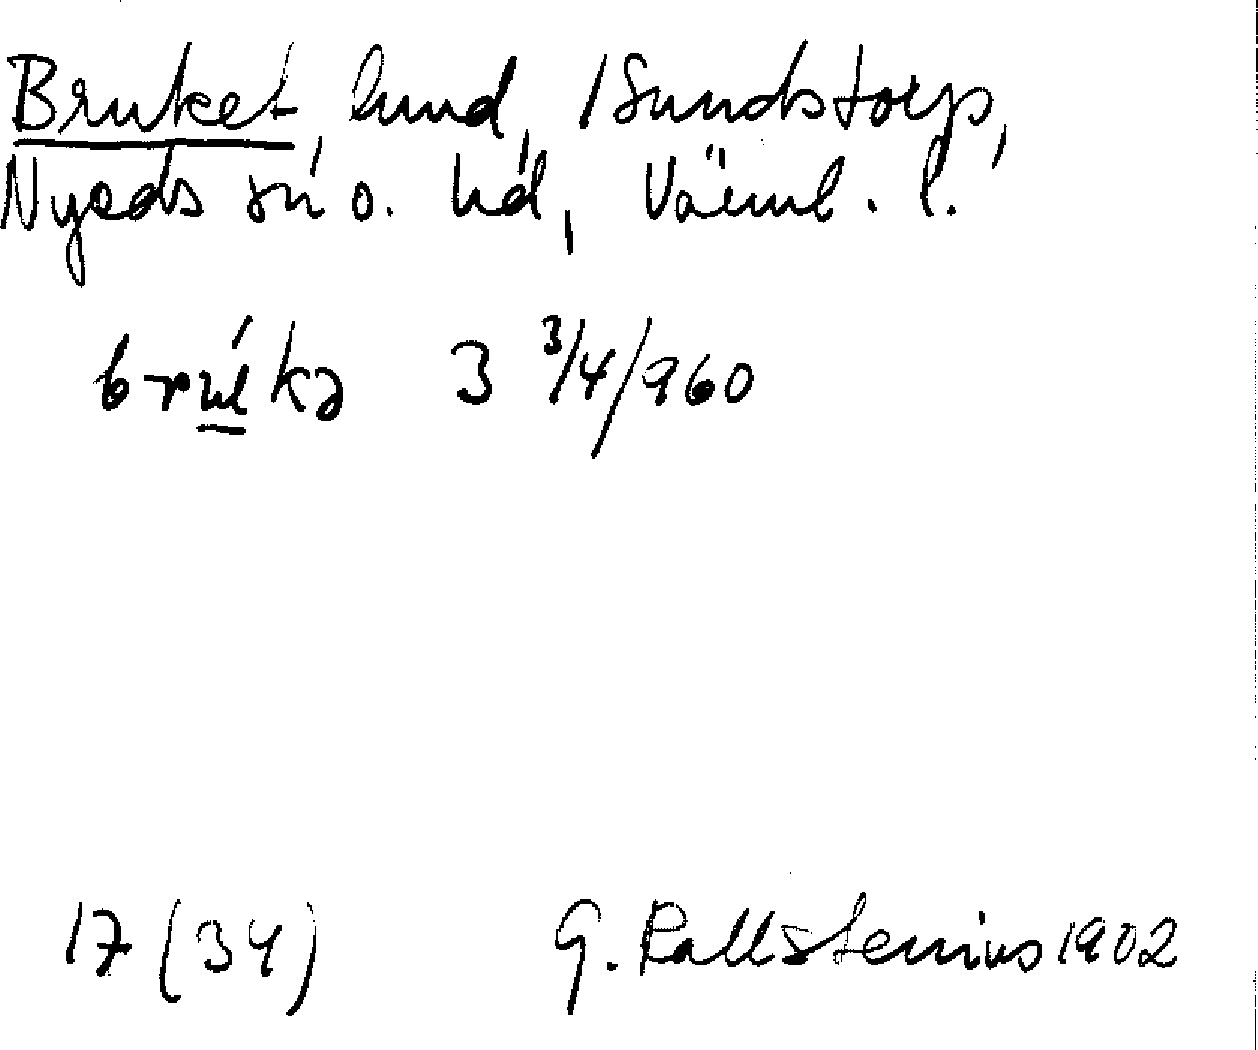 Bruket, lund, 1 Sundstorp,
Nyeds sn o. hd, Värml. l.
brúka 3 3/4/960
17 (34) G. Kallstenius 1902